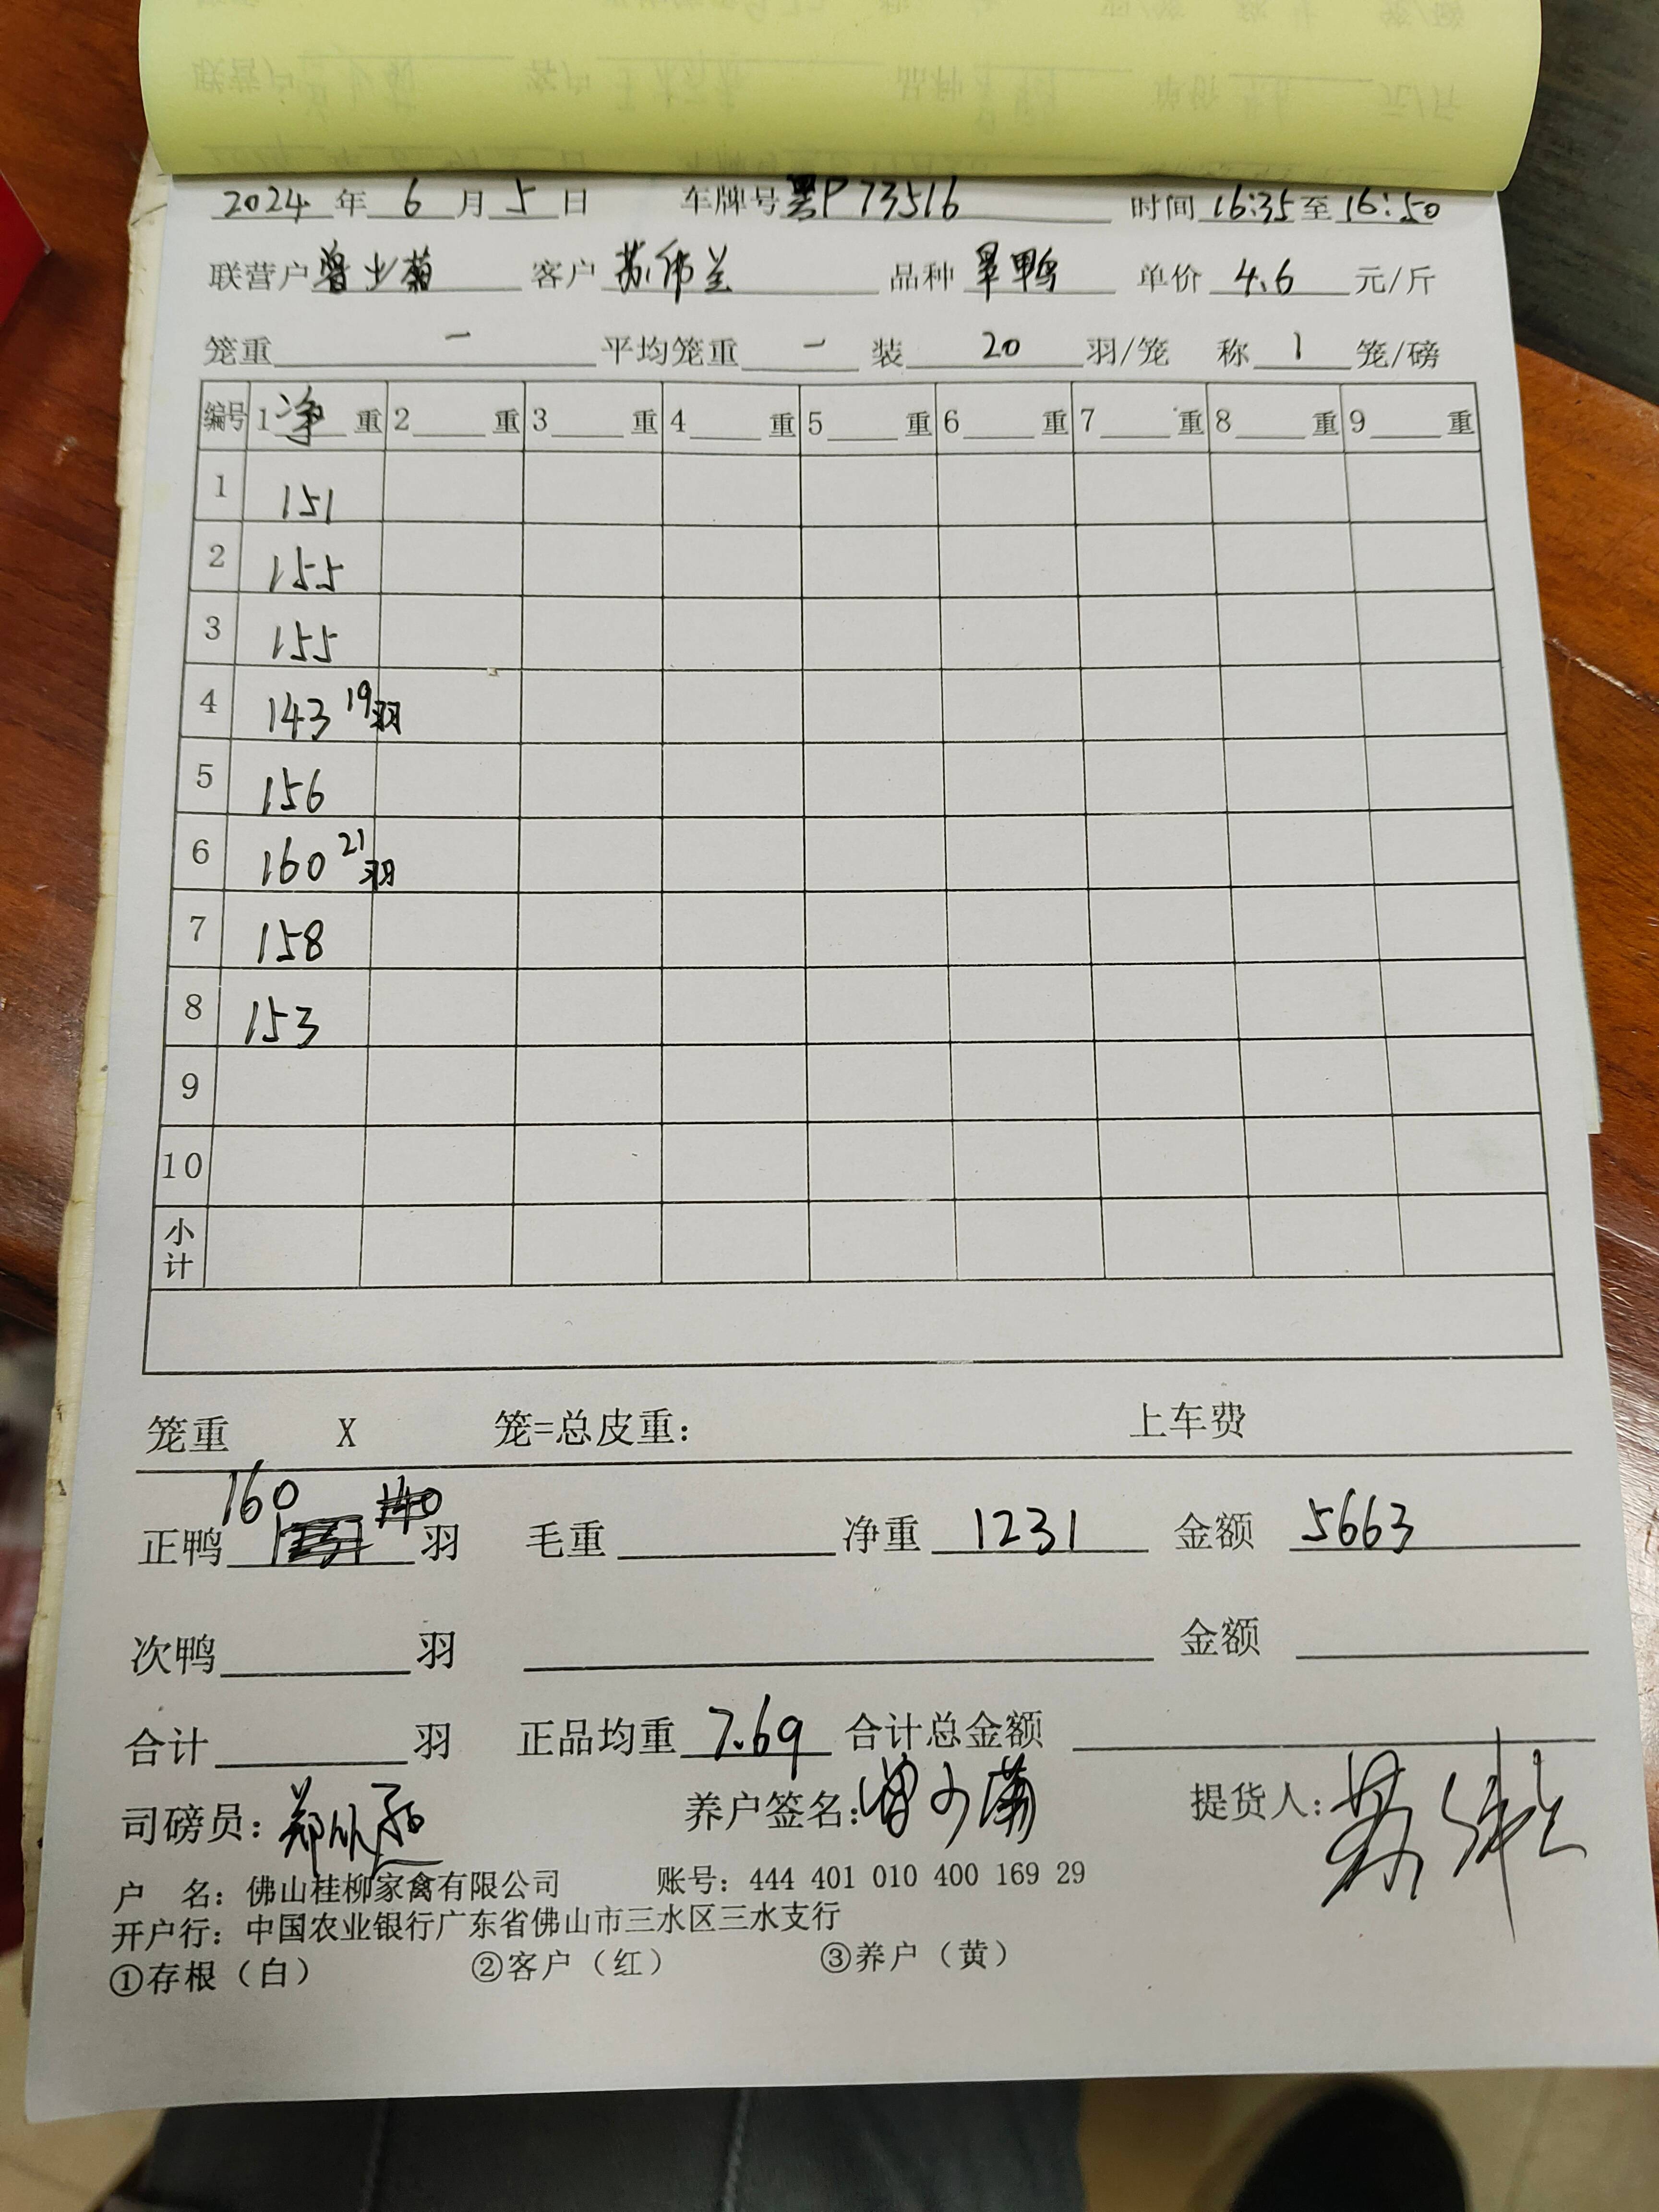 2024 年 6 月 5 日 车牌号 黑P 73516 时间 16:35 至 16:50
联营户 曾少菊 客户 苏伟兰 品种 旱鸭 单价 4.6 元/斤
笼重 一 平均笼重 一 装 20 羽/笼 称 1 笼/磅
编号 1 净 重 2 重 3 重 4 重 5 重 6 重 7 重 8 重 9 重
1 151
2 155
3 155
4 143 19羽
5 156
6 160 21羽
7 158
8 153
9
10
小计
笼重 X 笼=总皮重: 上车费
正鸭 160 羽 毛重 净重 1231 金额 5663
次鸭 羽 金额
合计 羽 正品均重 7.69 合计总金额
司磅员: 养户签名: 曾少菊 提货人: 苏伟兰
户 名: 佛山桂柳家禽有限公司 账号: 444 401 010 400 169 29
开户行: 中国农业银行广东省佛山市三水区三水支行
①存根（白） ②客户（红） ③养户（黄）